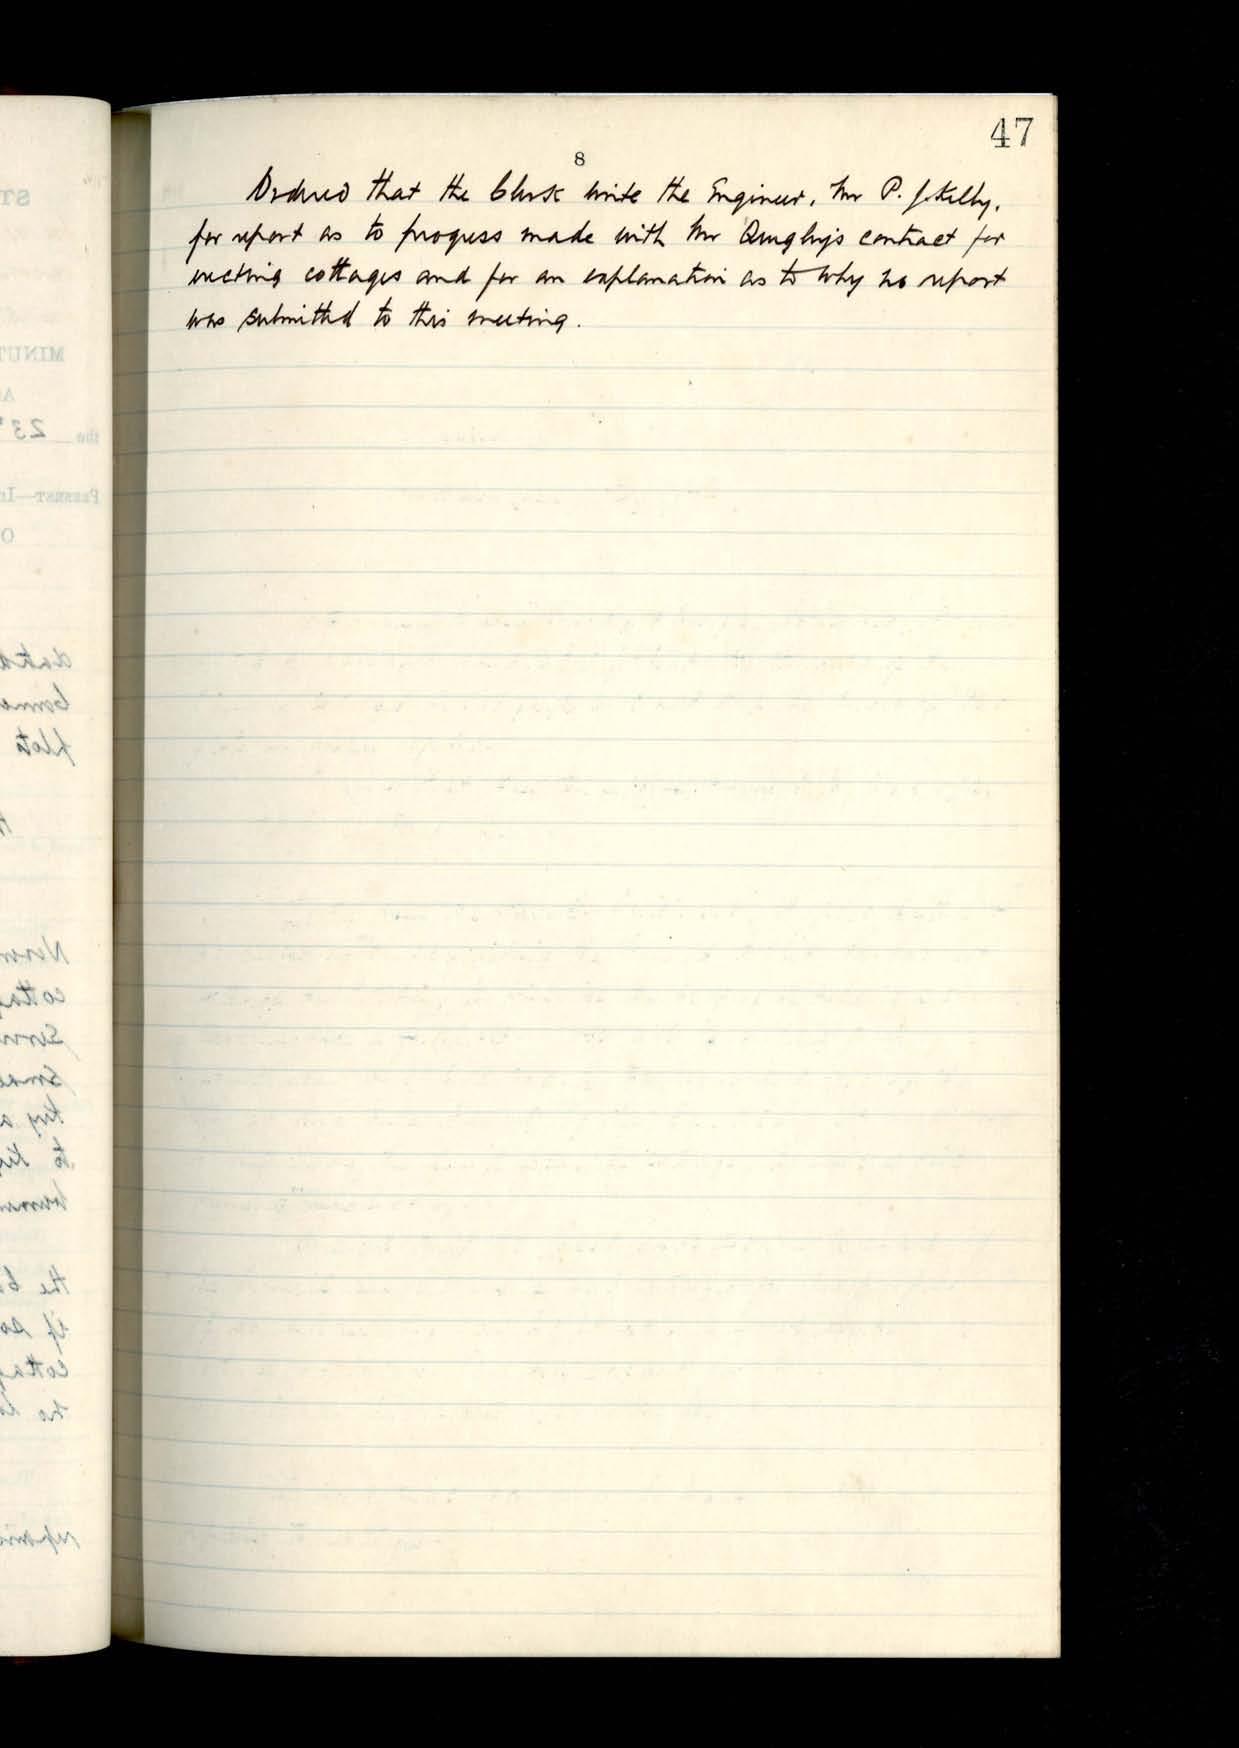 47
8
Ordered that the Clerk write the Engineer, Mr P. J. Kelly,
for report as to progress made with Mr contract for
erecting cottages and for an explanation as to why no report
was submitted to this meeting.